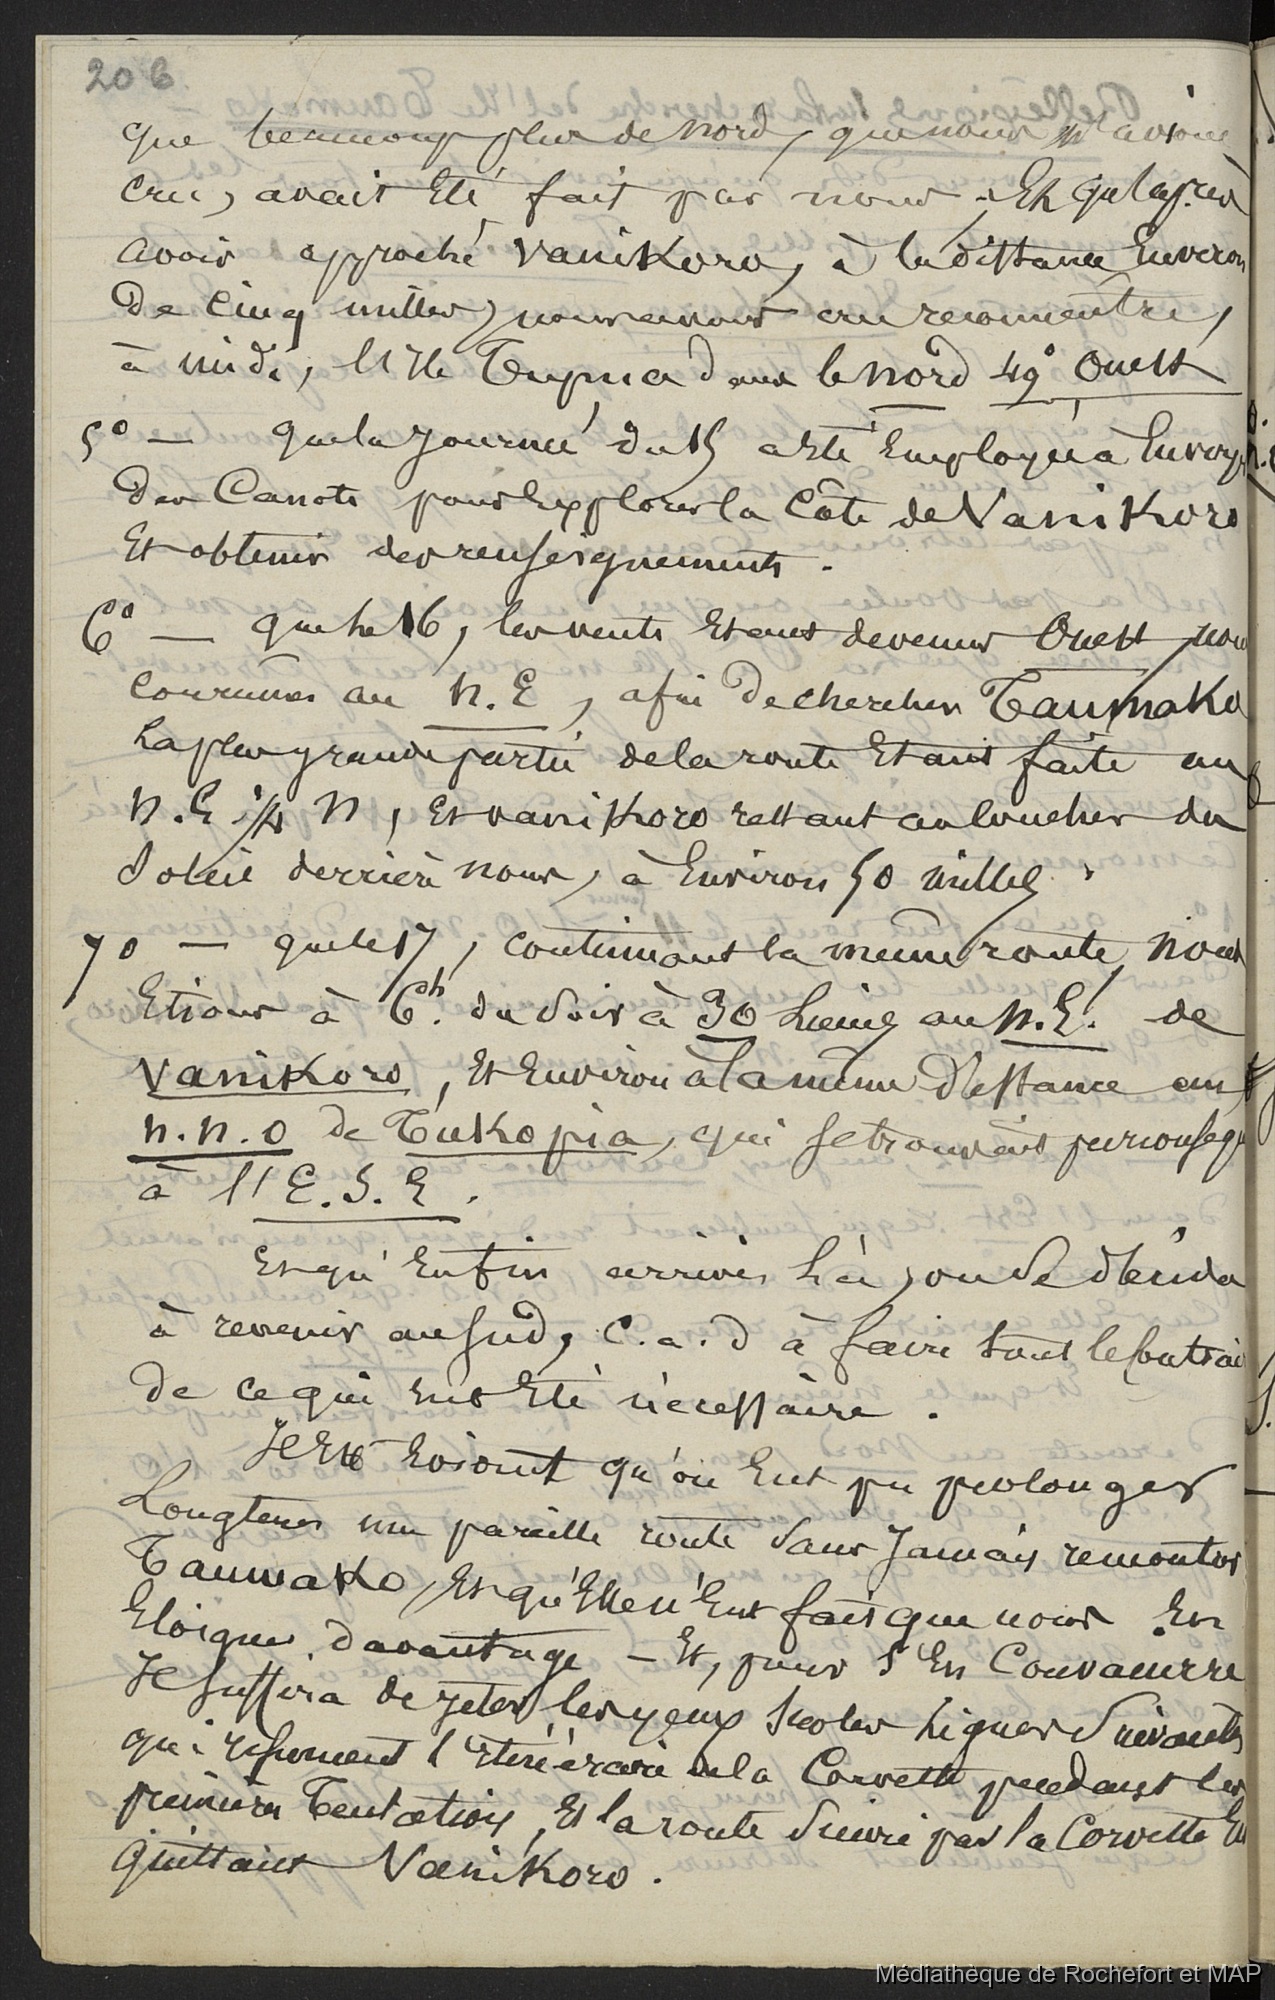 206
que beaucoup plus de nord, que nous n'avions
cru, avait Eté fait par nous - Et qu'après
avoir approché Vanikoro, à la distance Environ
De Cinq milles, nous avions cru reconnaitre,
à midi, l'Ile Tupua dans le nord 49° Ouest
5° — que la Journée du 15 a Eté Employée à Envoyer
des Canots pour Explorer la Côte de Vanikoro
Et obtenir des renseignements.
6° — que le 16, les vents Etant devenus Ouest, nous
courûmes au N.E, afin De chercher Taumako
La plus grande partie de la route Etant faite au
N.E 1/4 N, Et Vanikoro restant au coucher du
Soleil derrière nous, à Environ 50 milles.
7° — que le 17, continuant la même route, nous
Etions à 6h. du Soir à 30 Lieues au N.E. de
Vanikoro, Et Environ à la même Distance au
N.N.O de Tukopia, qui se trouvait par conséqt
à l'E.S.E.
Et qu'Enfin arrivés Là, on Se décida
à revenir au Sud, C.a.d à faire tout le Contraire
de ce qui Eut Eté nécessaire.
Il Est Evident qu'on Eut pu prolonger
Longtems une pareille route Sans Jamais remonter
Taumako, Et qu'Elle n'Eut fait que nous En
Eloigner davantage - Et, pour s'En Convaincre
Il Suffira de jeter les yeux Sur les Lignes Suivantes
qui résument l'Itinéraire de la Corvette pendant les
premières Tentatives, Et la route Suivie par la Corvette En
quittant Vanikoro.
Médiathèque de Rochefort et MAP